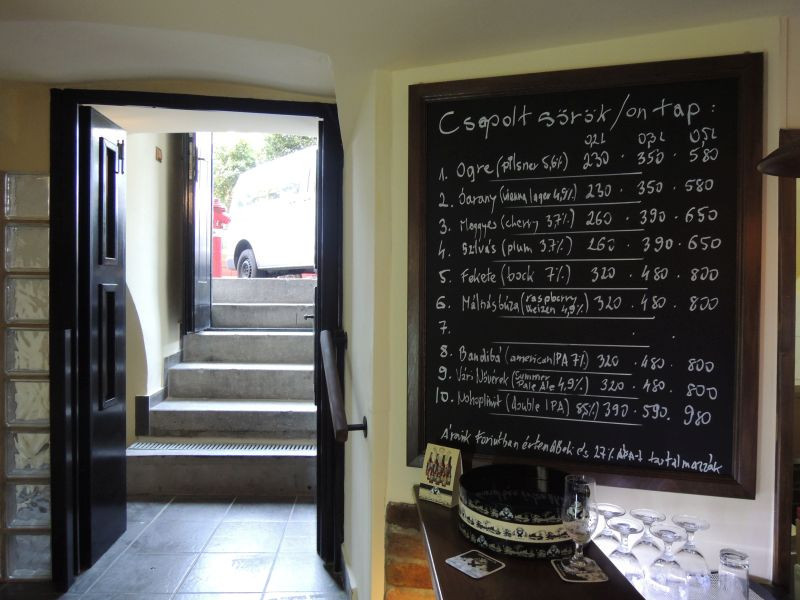 Csapolt sörök / on tap :
0,2 L 0,3 L 0,5 L
1. Ogre (pilsner 5,6%) 230 · 350 · 580
2. Barany (vienna lager 4,9%) 230 · 350 · 580
3. Meggyes (cherry 3,7%) 260 · 390 · 650
4. Szilvás (plum 3,7%) 260 · 390 · 650
5. Fekete (bock 7%) 320 · 480 · 800
6. Málnásbúza (raspberry weizen 4,9%) 320 · 480 · 800
7.
8. Bandibá (american IPA 7%) 320 · 480 · 800
9. Vári Nővérek (Summer Pale Ale 4,9%) 320 · 480 · 800
10. (double IPA) 8,5%) 390 · 590 · 980
Áraink forintban értendőek és 27% ÁFA-t tartalmazzák